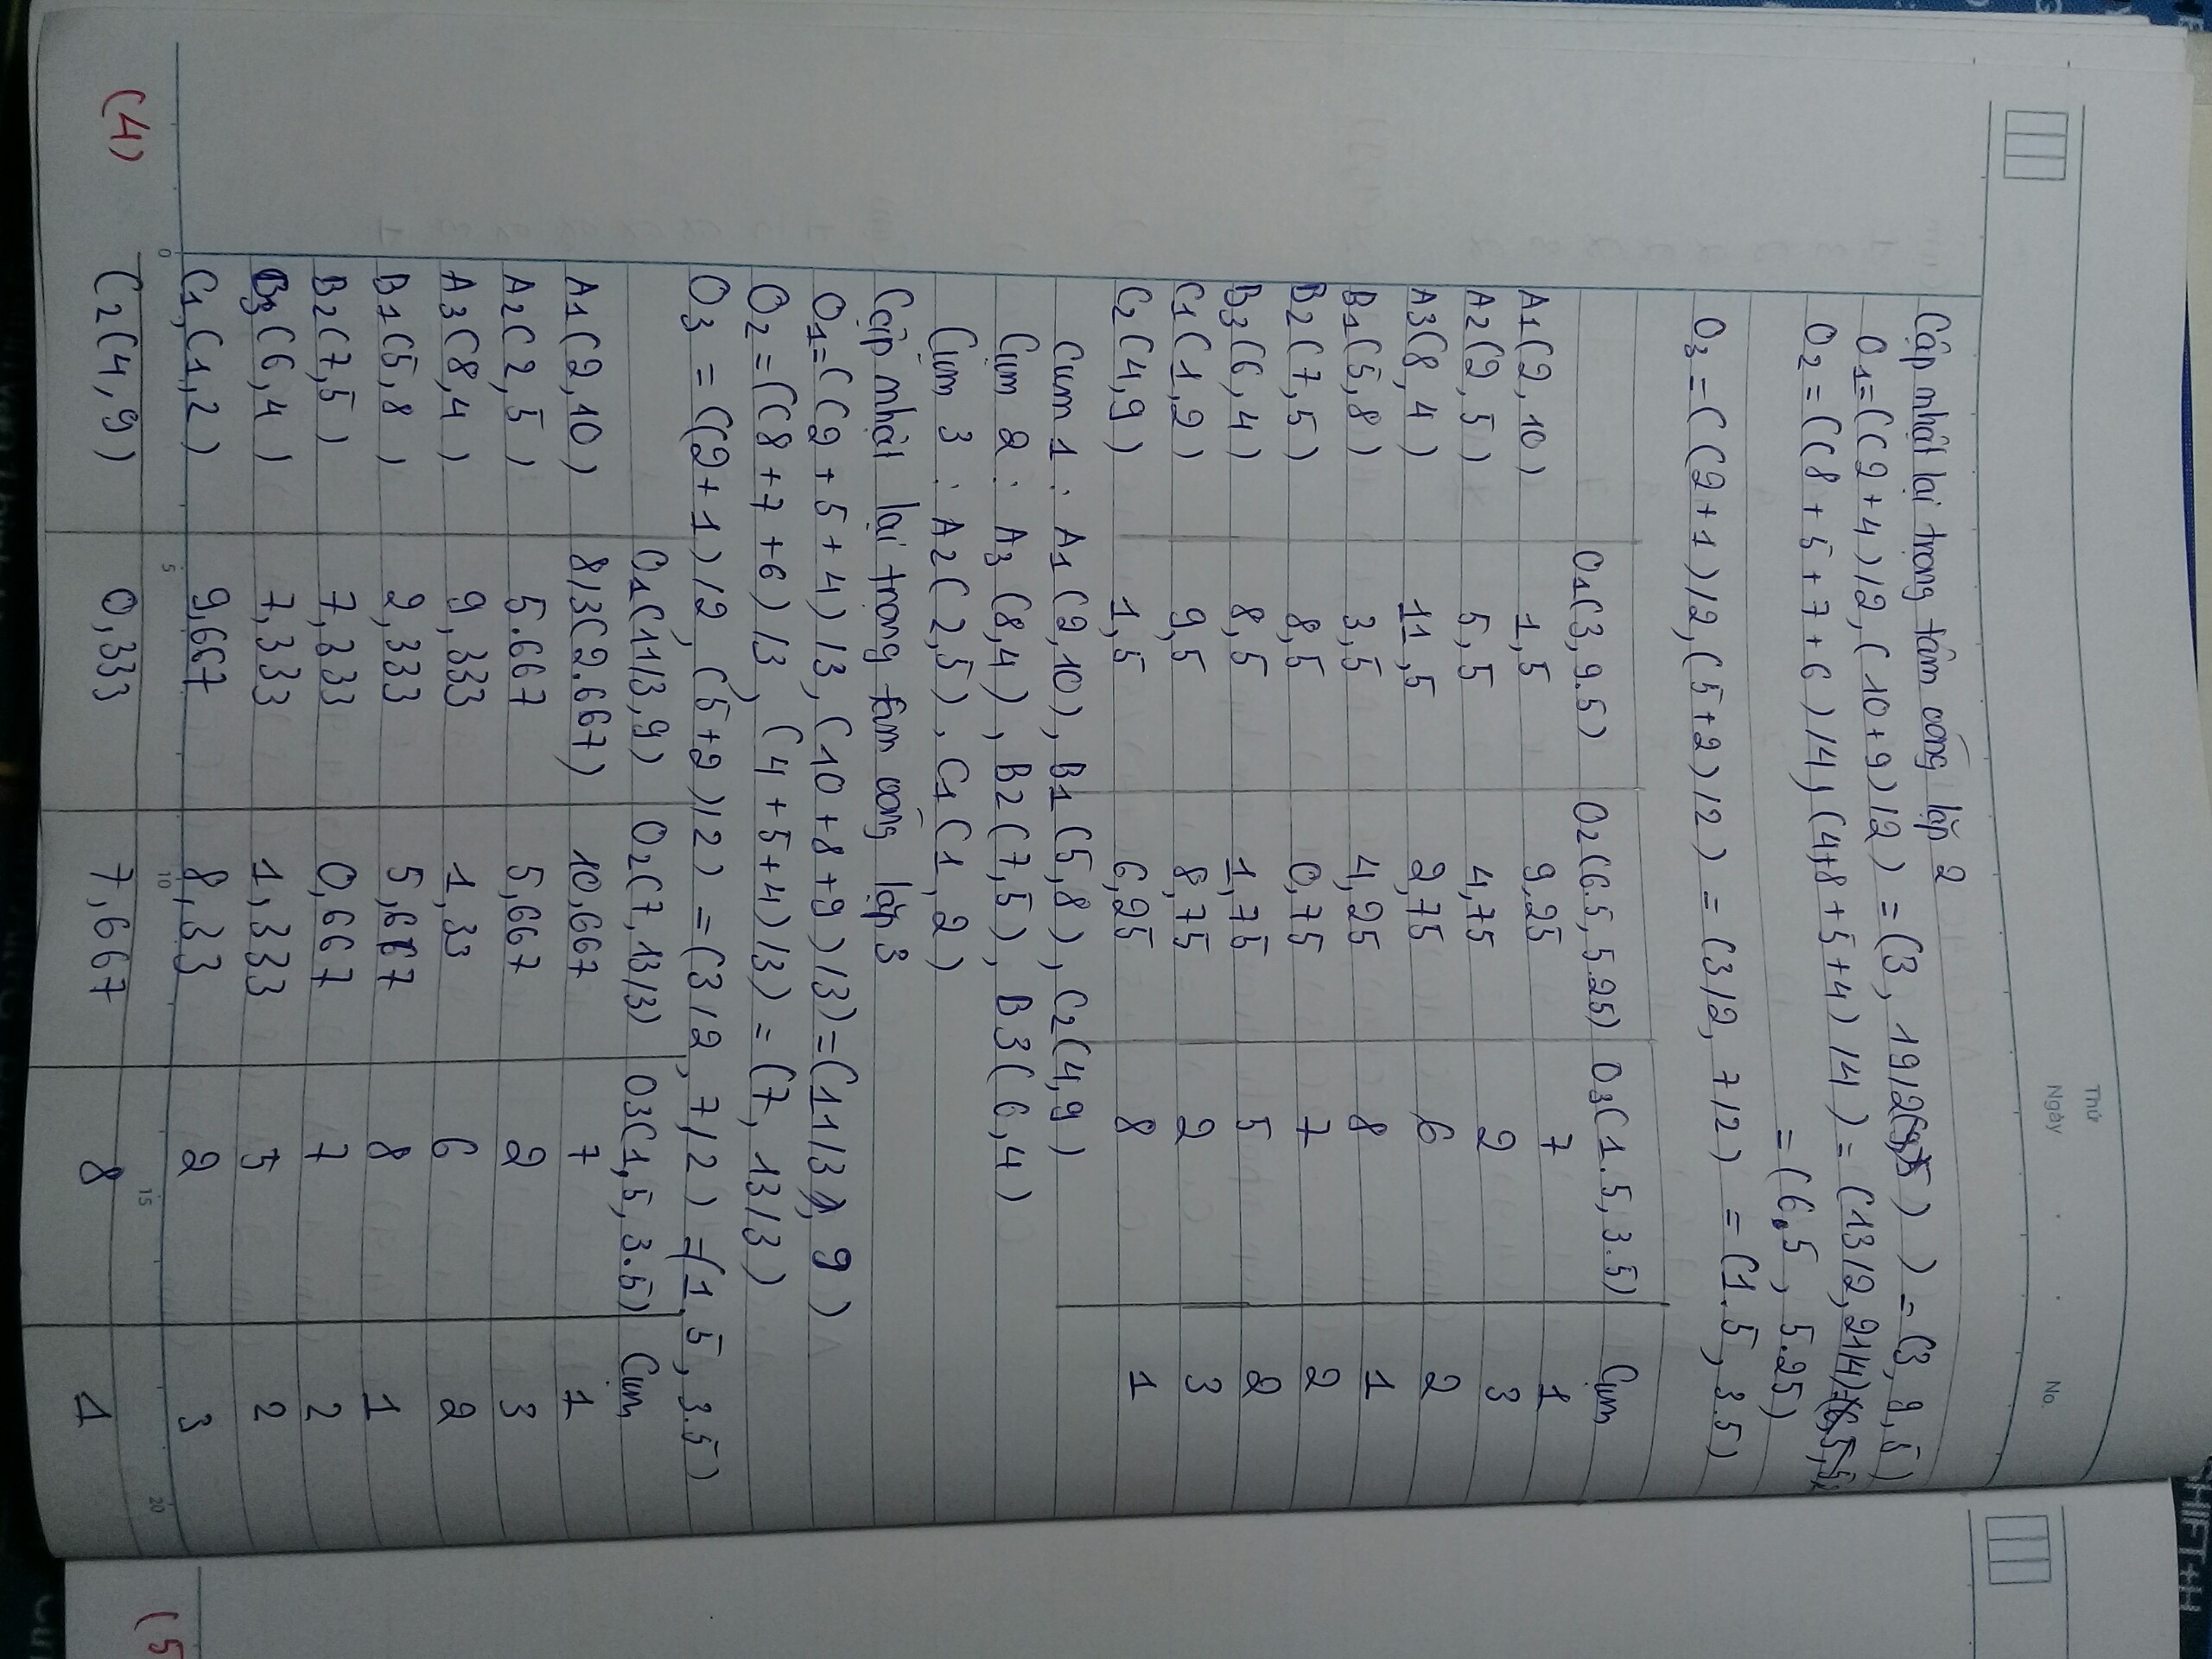 Thứ
Ngày . . No.
Cập nhật lại trọng tâm vòng lặp 2
O1=((2+4)/2,(10+9)/2)=(3, 19/2(9,5))=(3,9,5)
O2=((8+5+7+6)/4,(4+8+5+4)/4)=(13/2,21/4)
=(6,5, 5.25)
O3=((2+1)/2,(5+2)/2)=(3/2, 7/2)=(1.5, 3.5)
O1(3,9.5) O2(6.5, 5.25) O3(1.5,3.5) Cụm
A1(2,10) 1,5 9,25 7 1
A2(2,5) 5,5 4,75 2 3
A3(8,4) 11,5 2,75 6 2
B1(5,8) 3,5 4,25 8 1
B2(7,5) 8,5 0,75 7 2
B3(6,4) 8,5 1,75 5 2
C1(1,2) 9,5 8,75 2 3
C2(4,9) 1,5 6,25 8 1
Cụm 1: A1(2,10), B1(5,8), C2(4,9)
Cụm 2: A3(8,4), B2(7,5), B3(6,4)
Cụm 3: A2(2,5), C1(1,2)
Cập nhật lại trọng tâm vòng lặp 3
O1=((2+5+4)/3,(10+8+9)/3)=(11/3, 9)
O2=((8+7+6)/3, (4+5+4)/3)=(7, 13/3)
O3=((2+1)/2, (5+2)/2)=(3/2, 7/2)=(1,5, 3.5)
O1(11/3,9) O2(7,13/3) O3(1,5,3.5) Cụm
A1(2,10) 8/3(2.667) 10,667 7 1
A2(2,5) 5.667 5,667 2 3
A3(8,4) 9,333 1,33 6 2
B1(5,8) 2,333 5,667 8 1
B2(7,5) 7,333 0,667 7 2
B3(6,4) 7,333 1,333 5 2
C1,(1,2) 9,667 8,33 2 3
C2(4,9) 0,333 7,667 8 1
0 5 10 15 20
(4)
(5